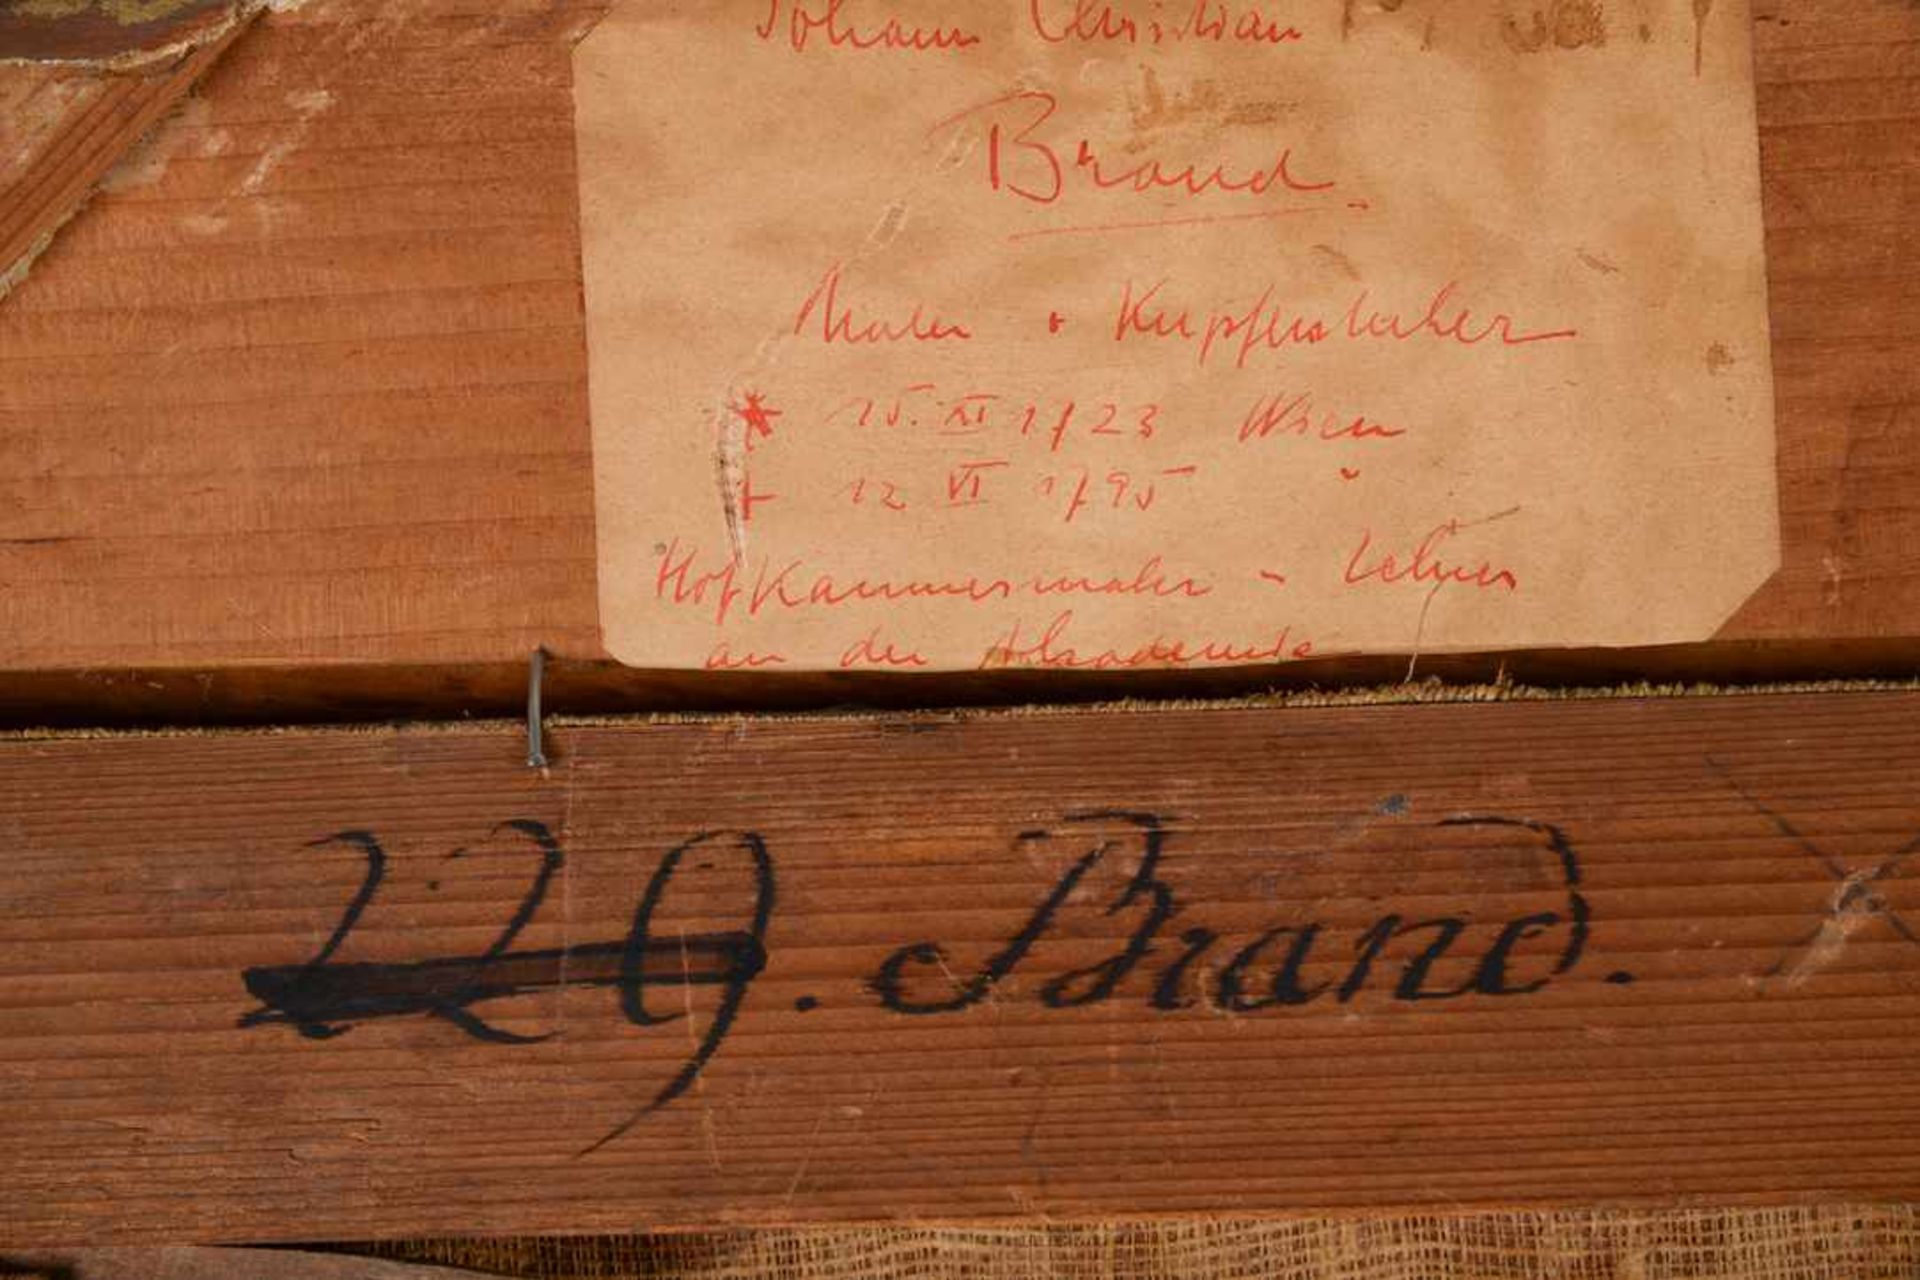 Johann Christian
Brand
Maler + Kupferstecher
* 15. XI 1723 Wien
+ 12 VI 1795 "
Hofkammermaler - Lehrer
an der Akademie
229. Brand.